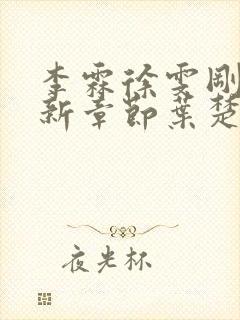 李霖徐雯刚
新章节叶楚
夜光杯